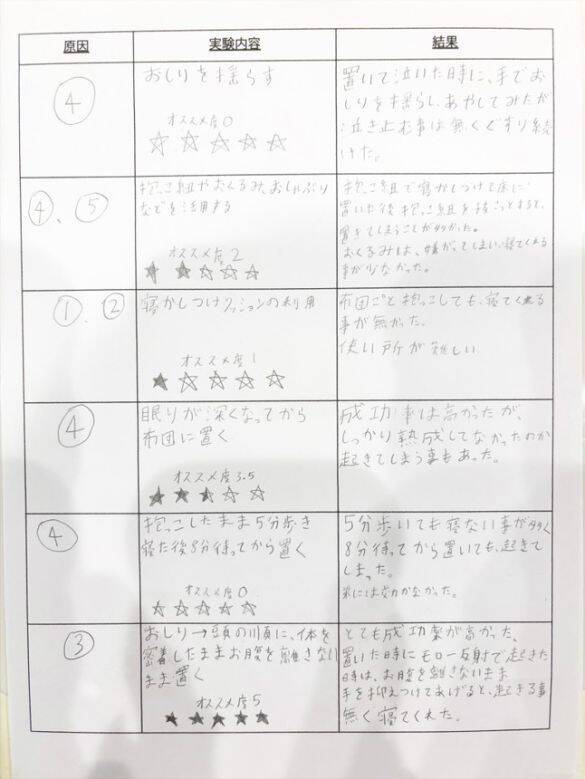 原因
実験内容
結果
④
おしりを揺らす
オススメ度0
☆☆☆☆☆
置いて泣いた時に、手でお
しりを揺らし、あやしてみたが
泣き止む事は無くぐずり続
けた。
④、⑤
抱っこ紐やおくるみ、おしゃぶり
などを活用する
オススメ度2
★★☆☆☆
抱っこ紐で寝かしつけて床に
置いた後抱っこ紐を抜こうとすると、
起きてしまうことが多かった。
おくるみは、嫌がってしまい寝てくれる
事が少なかった。
①、②
寝かしつけクッションの利用
オススメ度1
★☆☆☆☆
布団ごと抱っこしても、寝てくれる
事が無かった。
使い所が難しい
④
眠りが深くなってから
布団に置く
オススメ度3.5
成功率は高かったが、
しっかり熟成してなかったのか
起きてしまう事もあった。
④
抱っこしたまま5分歩き
寝た後8分待ってから置く
オススメ度0
☆☆☆☆☆
5分歩いても寝ない事が多く
8分待ってから置いても、起きて
しまった。
効かなかった。
③
おしり→頭の順に、体を
密着したままお腹を離さない
まま置く
オススメ度5
★★★★★
とても成功率が高かった、
置いた時にモロー反射で起きた
時は、お腹を離さないまま
手を抑えつけてあげると、起きる事
無く寝てくれた。